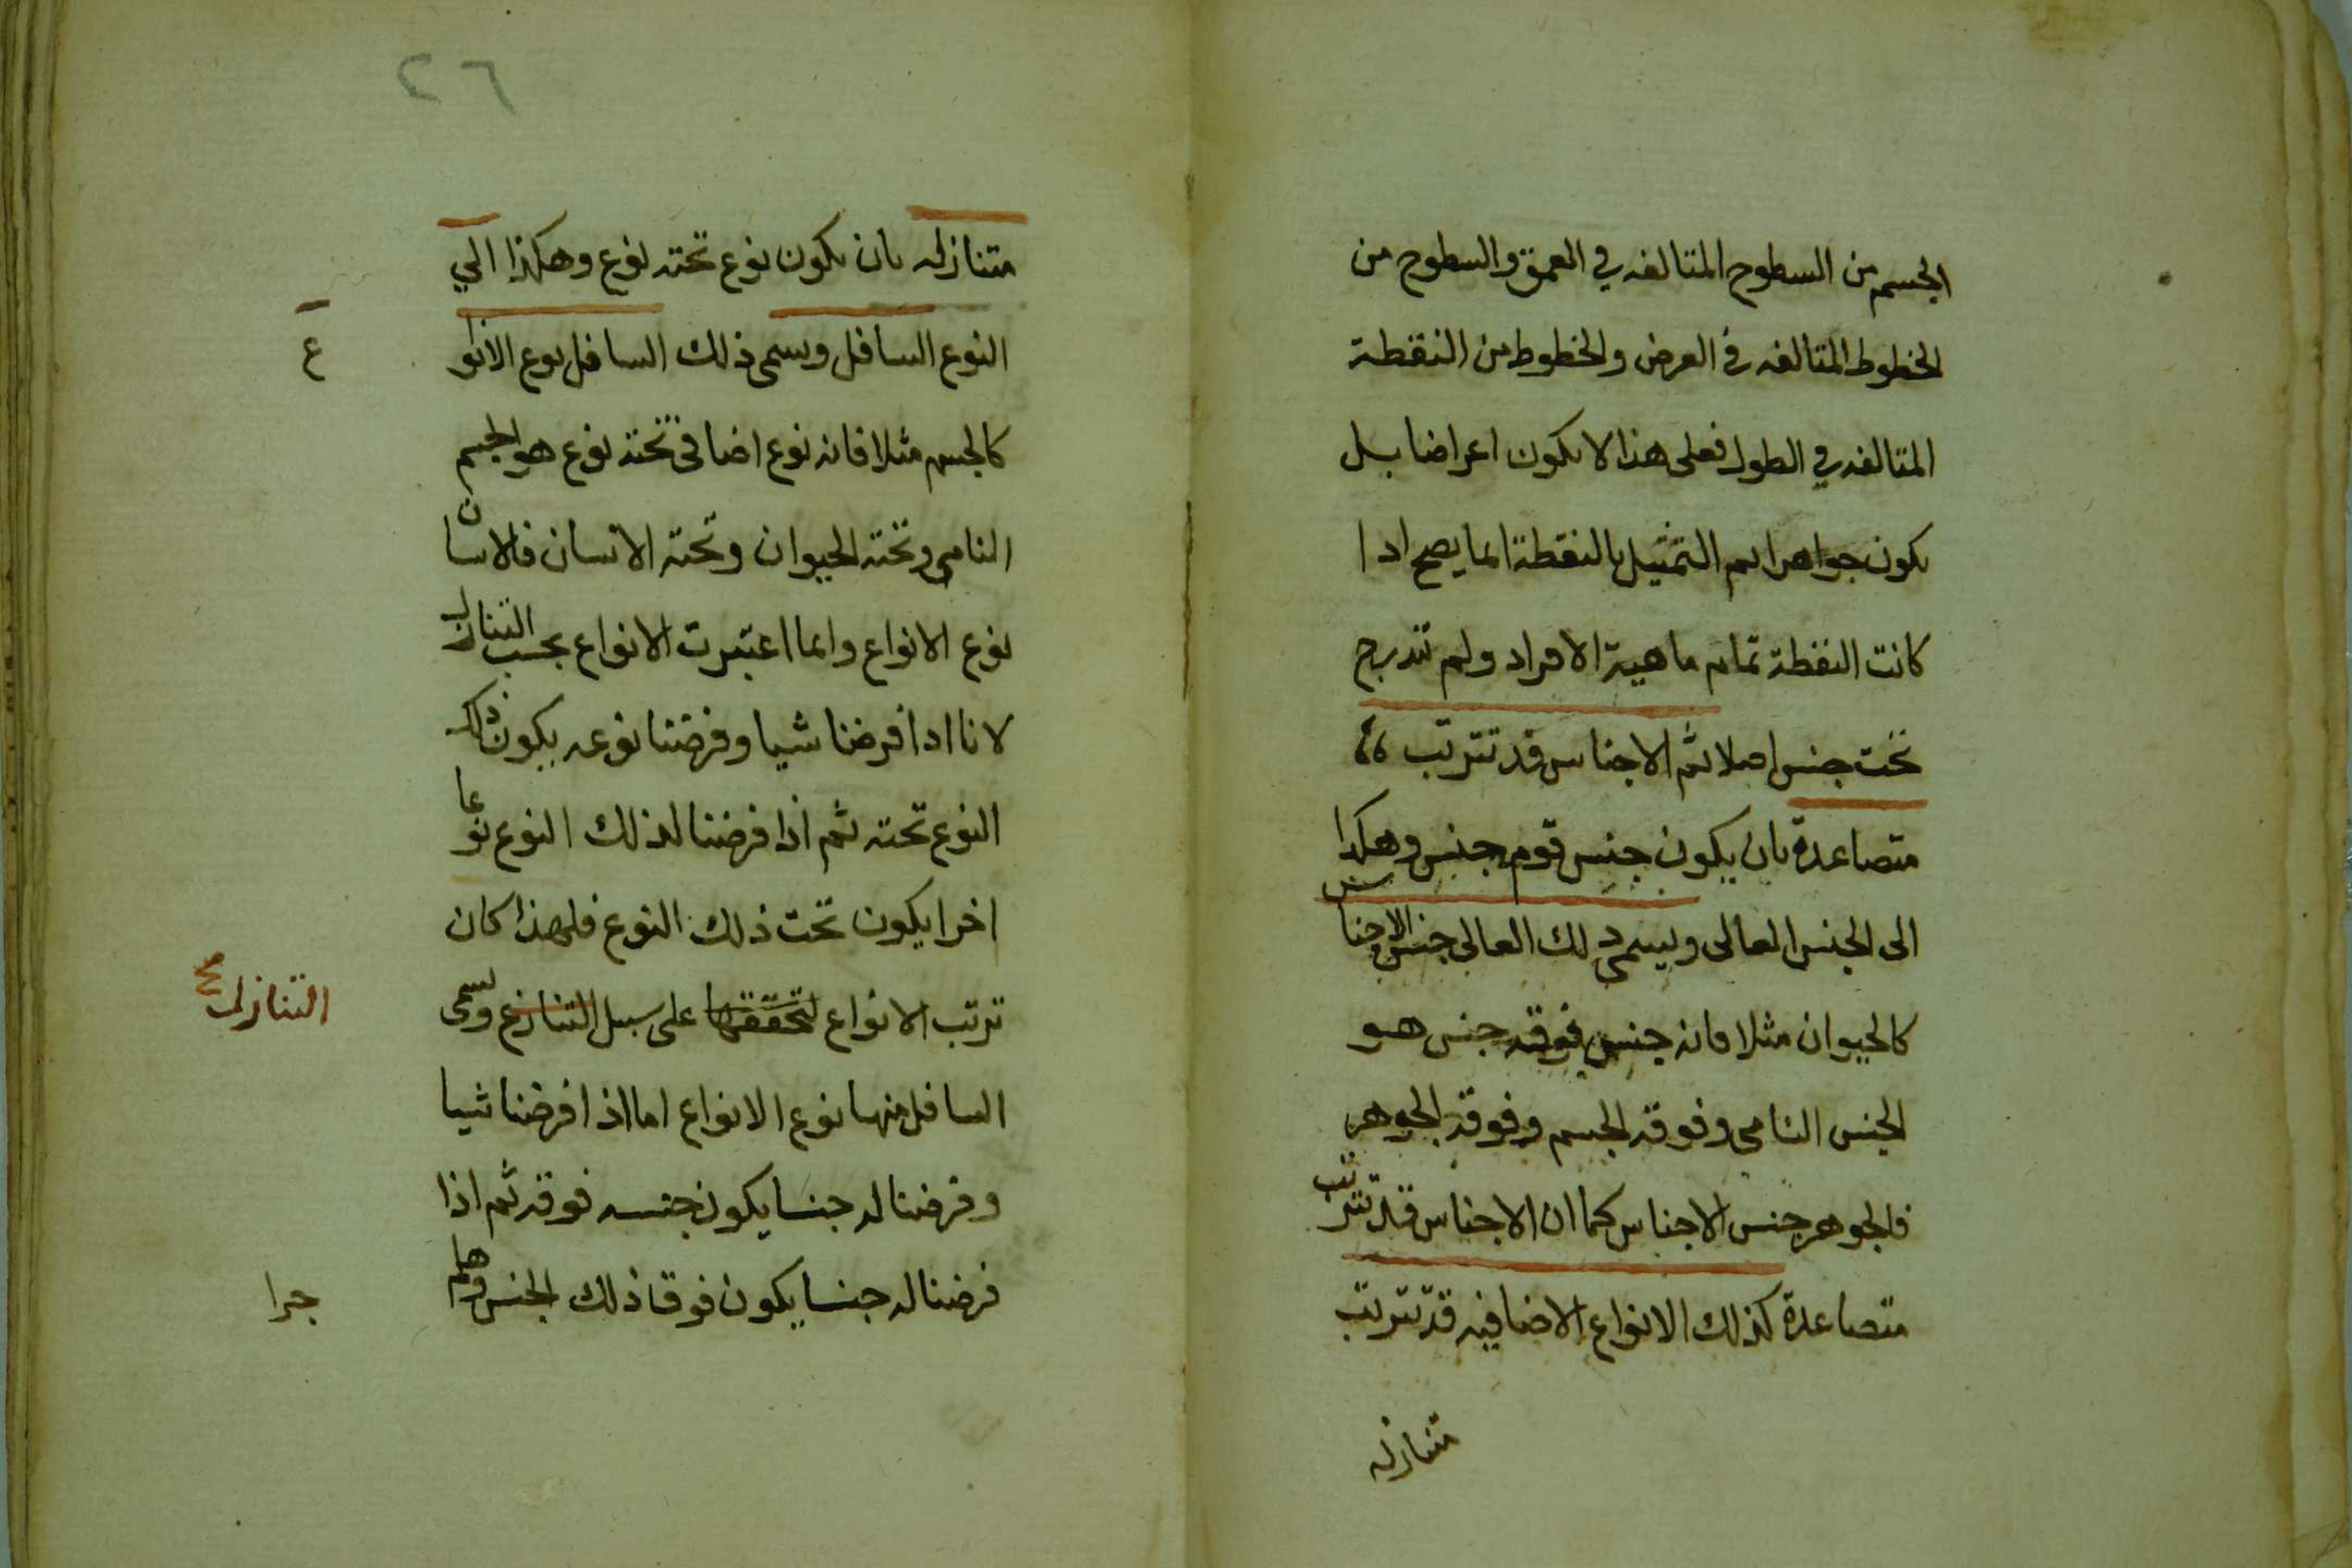 الجسم من السطوح المتالفه في العمق والسطوح من
الخطوط المتالفه في العرض والخطوط من النقطة
المتالفه في الطول فعلى هذا لا يكون اعراضا بل
يكون جواهر ثم التمثيل بالنقطة انما يصح اذا
كانت النقطة تمام ماهية الافراد ولم تندرج
تحت جنس اصلا ثم الاجناس قد تترتب
متصاعدة بان يكون جنس فوقه جنس وهكذا
الى الجنس العالى ويسمى ذلك العالى جنس الاجناس
كالحيوان مثلا فانه جنس فوقه جنس هو
الجنس النامى وفوقه الجسم وفوقه الجوهر
فالجوهر جنس الاجناس كما ان الاجناس قد تترتب
متصاعدة كذلك الانواع الاضافيه قد تترتب
متنازله
٢٦
متنازله بان يكون نوع تحته نوع وهكذا الي
النوع السافل ويسمى ذلك السافل نوع الانواع
كالجسم مثلا فانه نوع اضافى تحته نوع هو الجسم
النامى وتحته الحيوان وتحته الانسان فالانسان
نوع الانواع وانما اعتبرت الانواع بحسب التنازل
لانا اذا فرضنا شيا وفرضنا نوعه يكون ذلك
النوع تحته ثم اذا فرضنا لذلك النوع نوعا
اخرا يكون تحت ذلك النوع فلهذا كان
ترتب الانواع لتحققها على سبيل التنازع ويسمى
التنازل صح
السافل منها نوع الانواع اما اذا فرضنا شيا
وفرضنا له جنسا يكون جنسه فوقه ثم اذا
فرضنا له جنسا يكون فوق ذلك الجنس وهلم
جرا